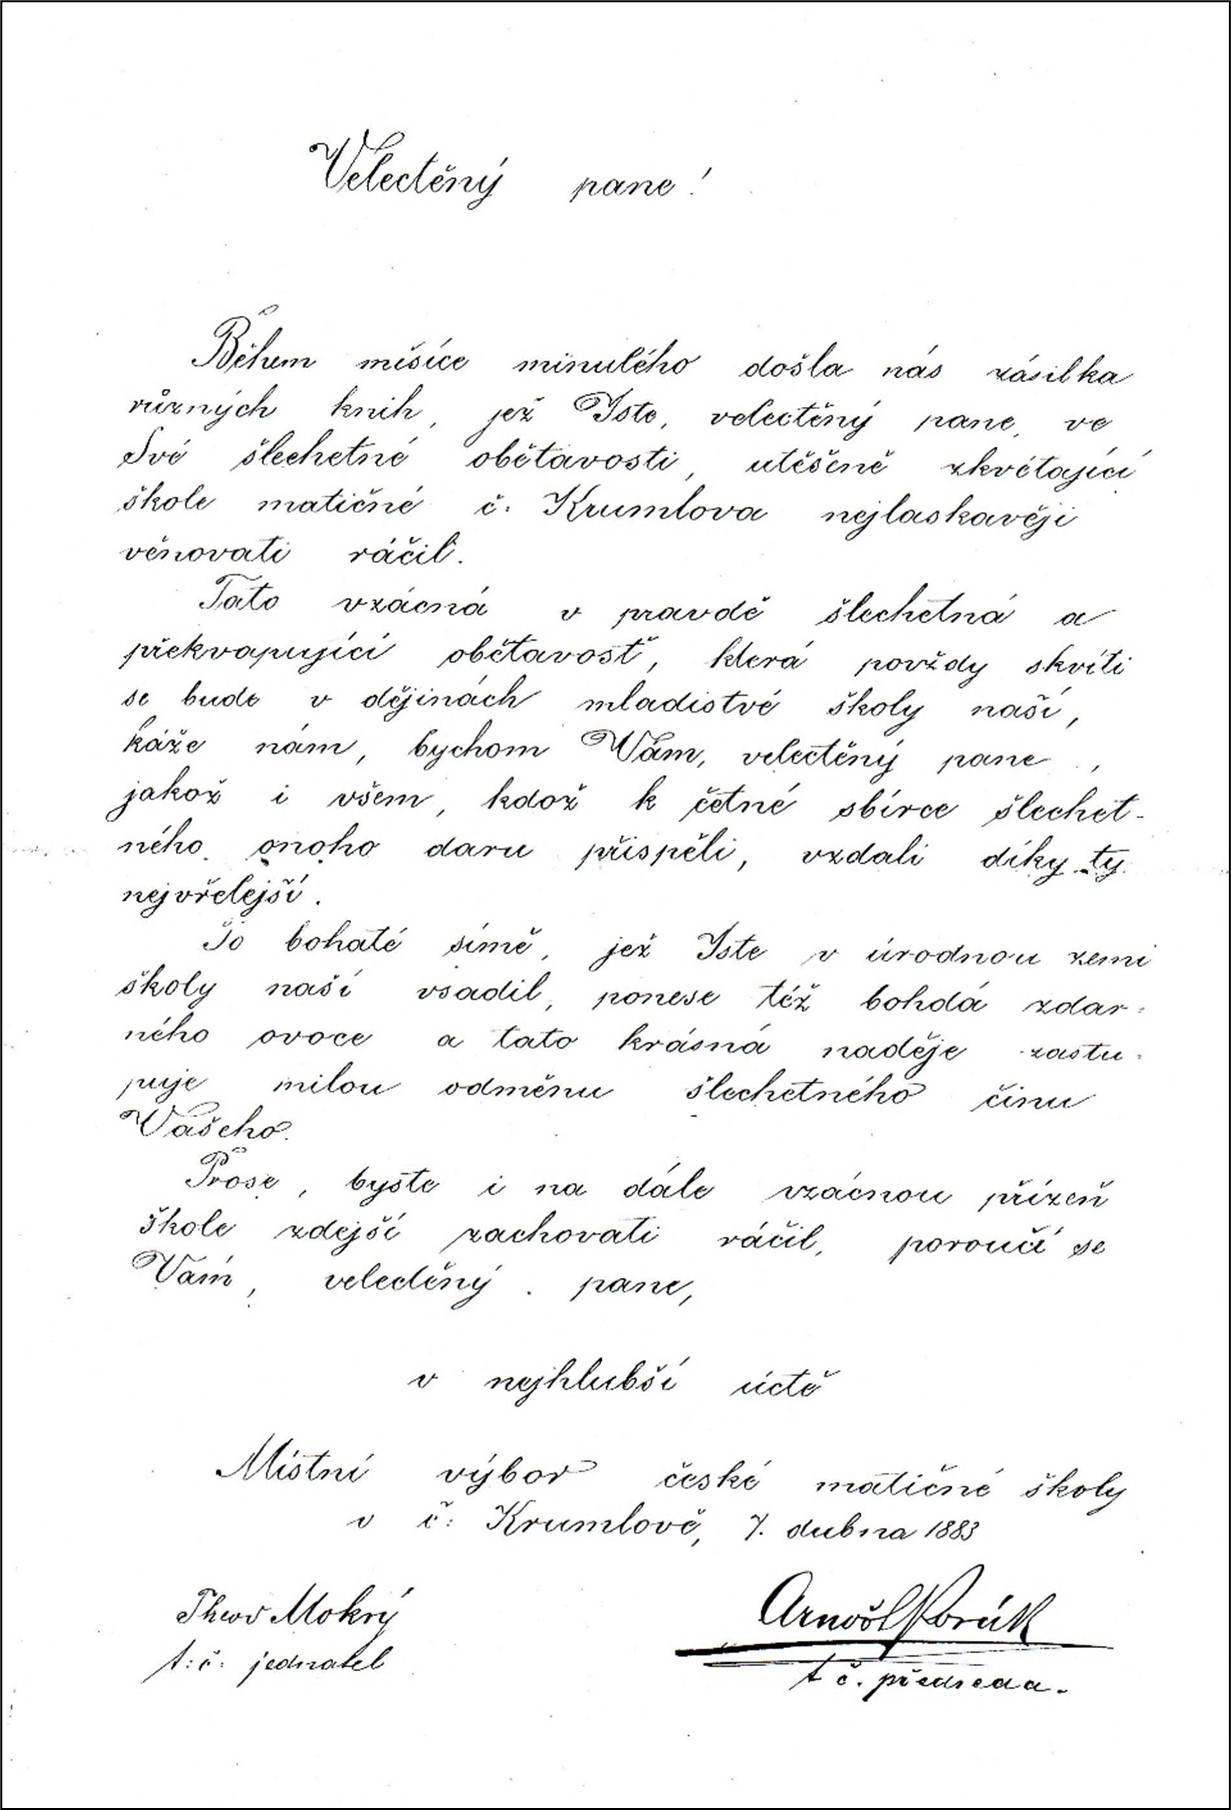 Velectěný pane!
Během měsíce minulého došla nás zásilka
různých knih, jež Jste, velectěný pane, ve
Své šlechetné obětavosti, utěšeně zkvétající
škole matičné č. Krumlova nejlaskavěji
věnovati ráčil.
Tato vzácná v pravdě šlechetná a
překvapující obětavost, která povždy skvíti
se bude v dějinách mladistvé školy naší,
káže nám, bychom Vám, velectěný pane,
jakož i všem, kdož k četné sbírce šlechet-
ného onoho daru přispěli, vzdali díky ty
nejvřelejší.
To bohaté símě, jež Jste v úrodnou zemi
školy naší vsadil, ponese též bohdá zdar-
ného ovoce a tato krásná naděje zastu-
puje milou odměnu šlechetného činu
Vašeho.
Prose, byste i na dále vzácnou přízeň
škole zdejší zachovati ráčil, poroučí se
Vám, velectěný pane,
v nejhlubší úctě
Místní výbor české matičné školy
v č: Krumlově, 7. dubna 1883
Mokrý
t:č: jednatel
Arnošt
t č. předseda.